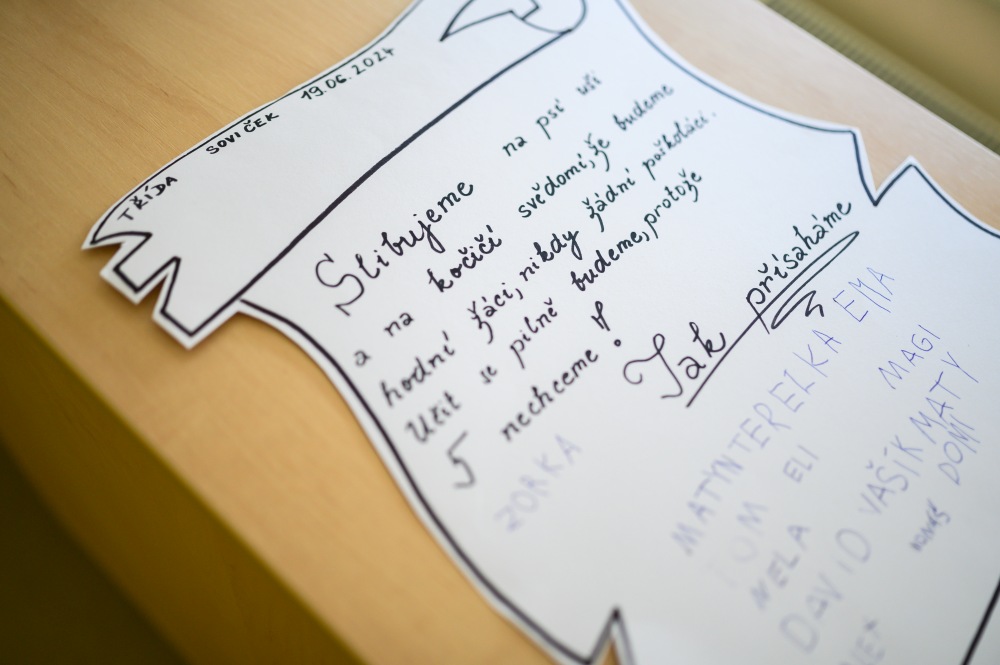 TŘÍDA SOVIČEK 19.06.2024
Slibujeme na psí uši
a na kočičí svědomí, že budeme
hodní žáci, nikdy žádní paškoláci.
Učit se pilně budeme, protože
5 nechceme!
Tak přísaháme
ZORKA
MATYN TERELKA EMA
TOM ELI MAGI
NELA VAŠÍK MATY
DAVID DOMI